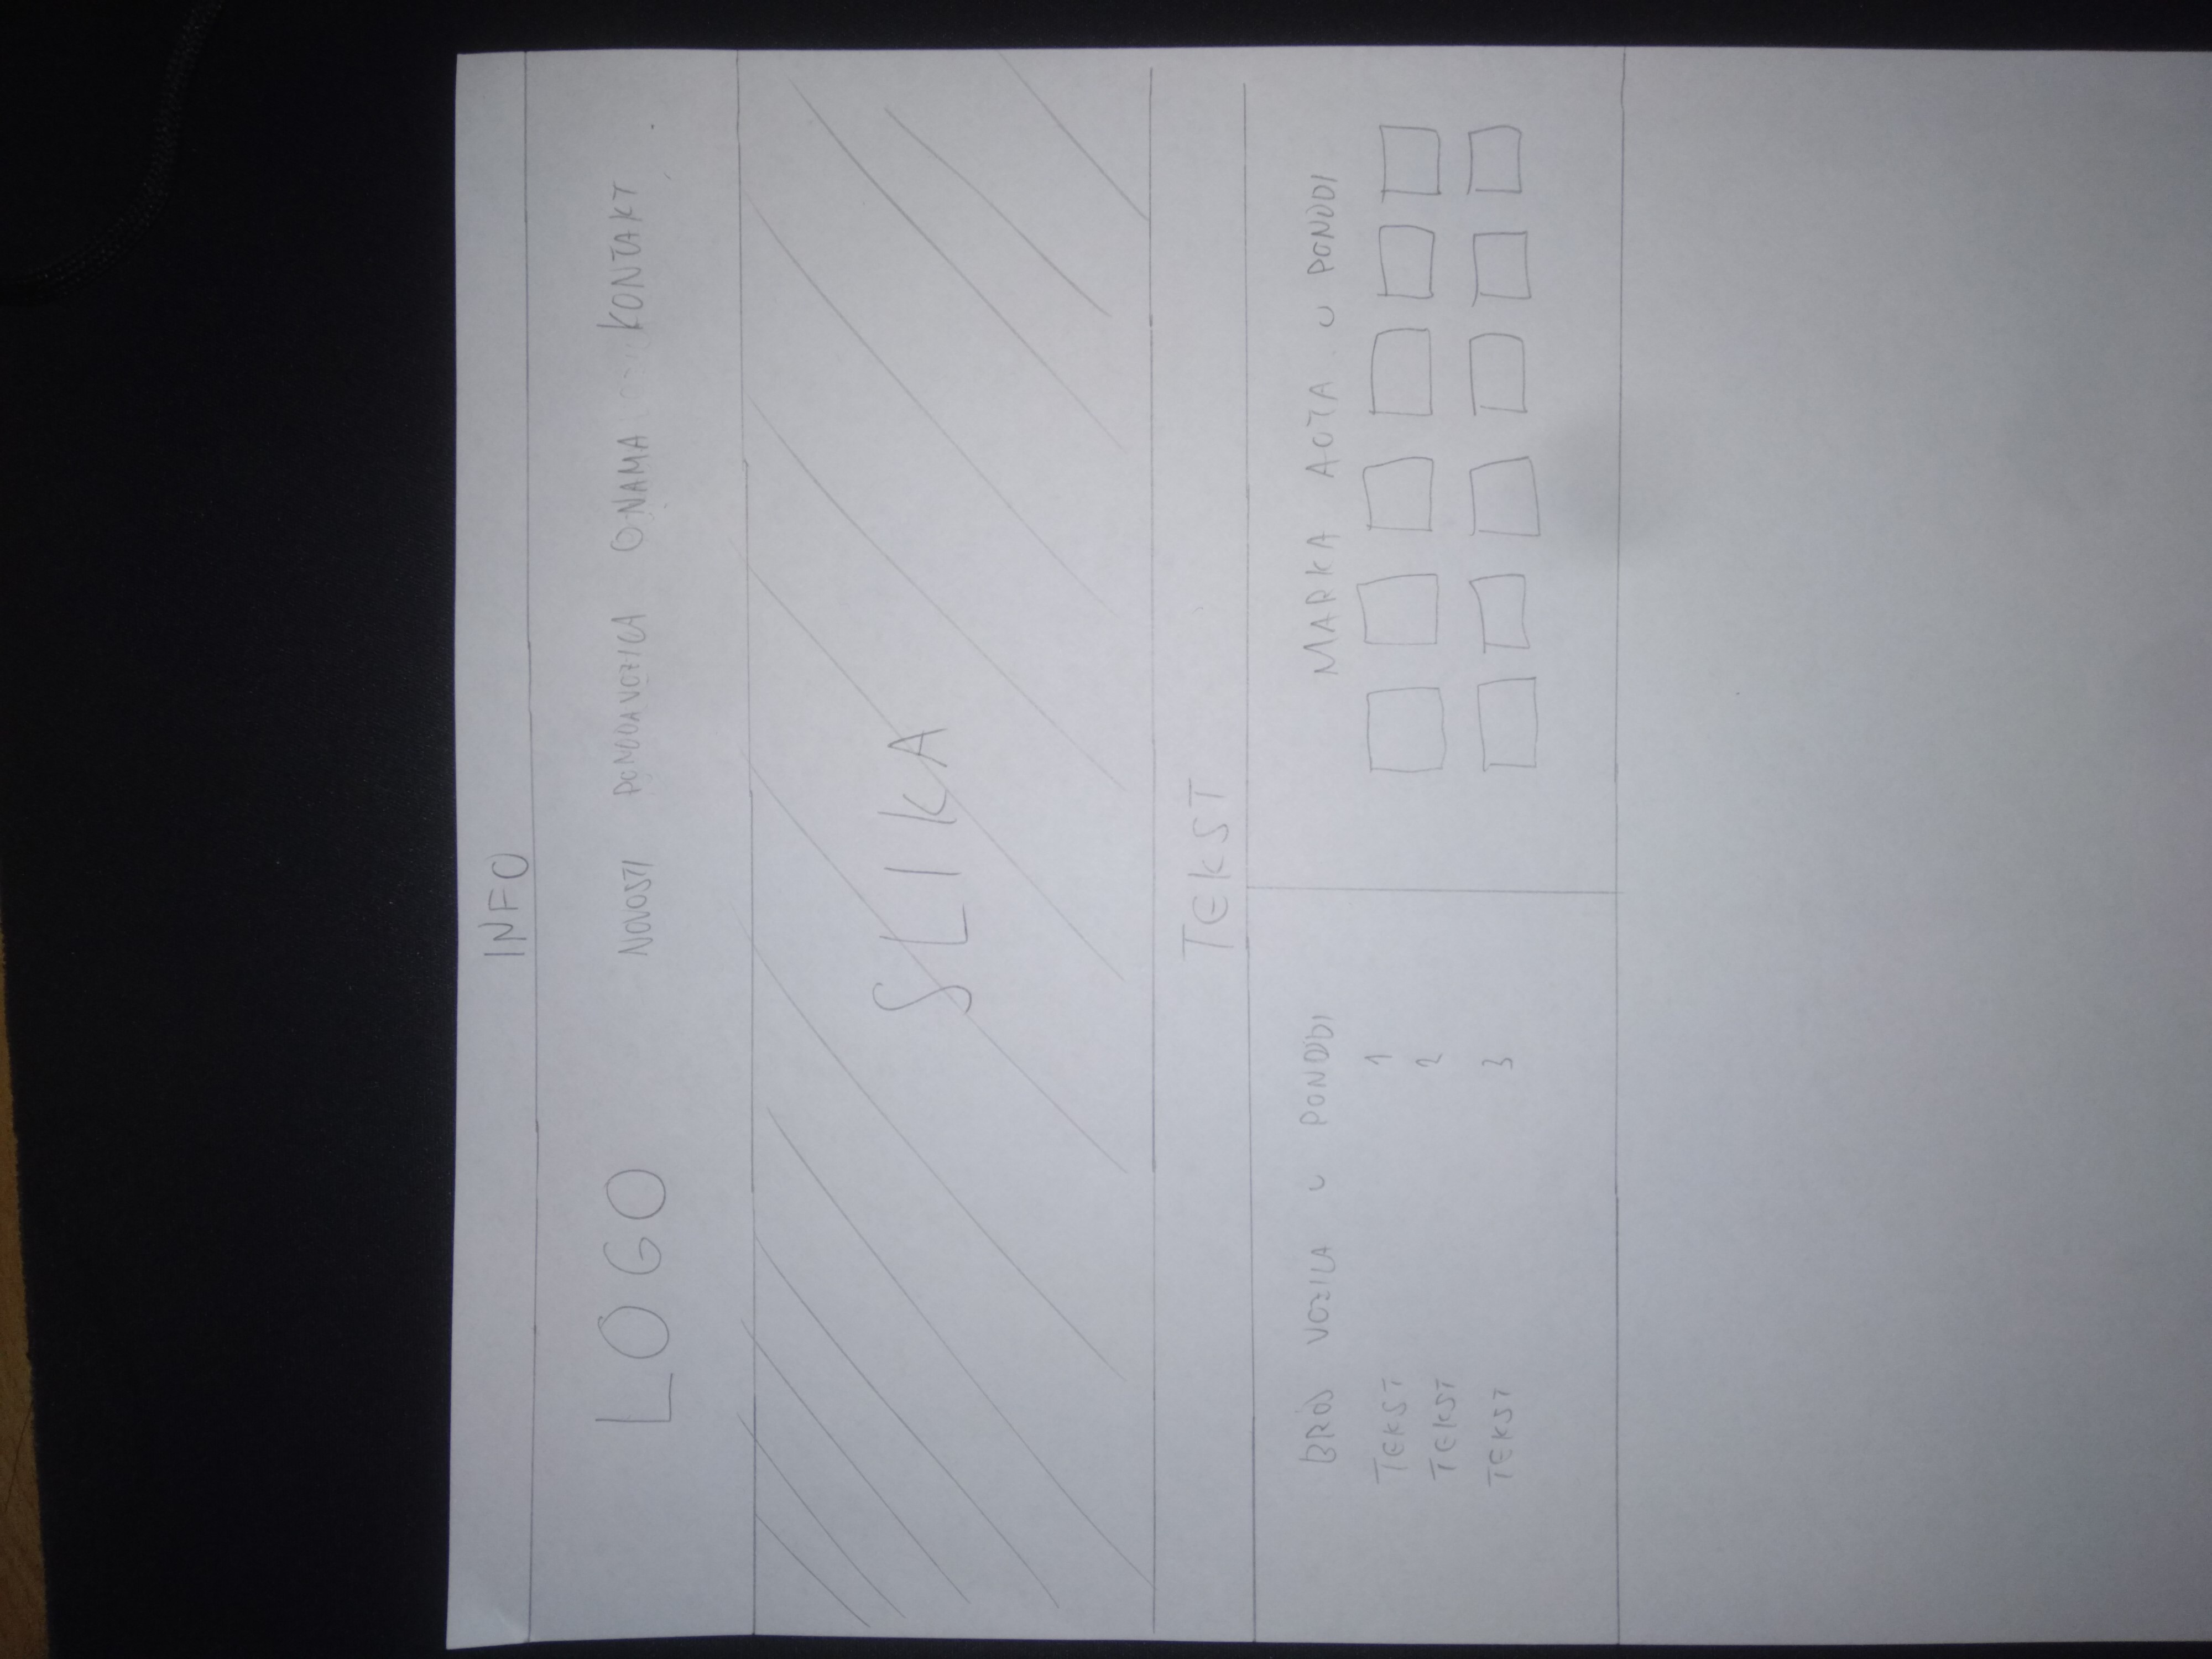 INFO
LOGO NOVOSTI PONUDA VOZILA O NAMA KONTAKT
SLIKA
TEKST
BROJ VOZILA U PONUDI
TEKST 1
TEKST 2
TEKST 3
MARKA AUTA U PONUDI